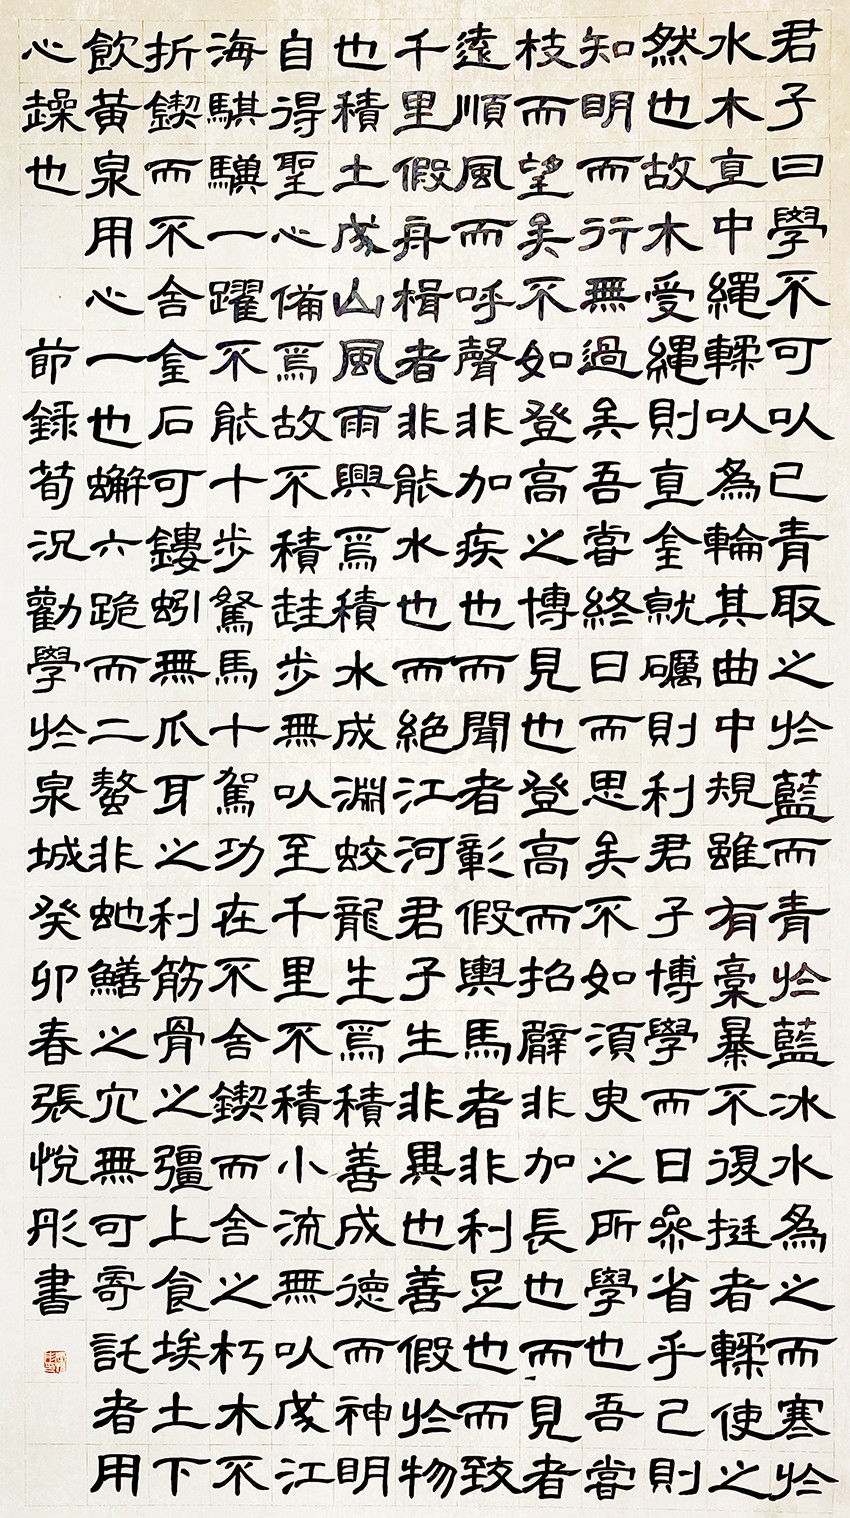 君子曰學不可以已青取之於藍而青於藍冰水為之而寒於
水木直中繩輮以為輪其曲中規雖有槀暴不復挺者輮使之
然也故木受繩則直金就礪則利君子博學而日參省乎己則
知明而行無過矣吾嘗終日而思矣不如須臾之所學也吾嘗
枝而望矣不如登高之博見也登高而招臂非加長也而見者
遠順風而呼聲非加疾也而聞者彰假輿馬者非利足也而致
千里假舟楫者非能水也而絕江河君子生非異也善假於物
也積土成山風雨興焉積水成淵蛟龍生焉積善成德而神明
自得聖心備焉故不積跬步無以至千里不積小流無以成江
海騏驥一躍不能十步駑馬十駕功在不舍鍥而舍之朽木不
折鍥而不舍金石可鏤蚓無爪耳之利筋骨之彊上食埃土下
飲黃泉用心一也蠏六跪而二螯非虵鱔之穴無可寄託者用
心趮也 節錄荀況勸學於泉城癸卯春張悅彤書